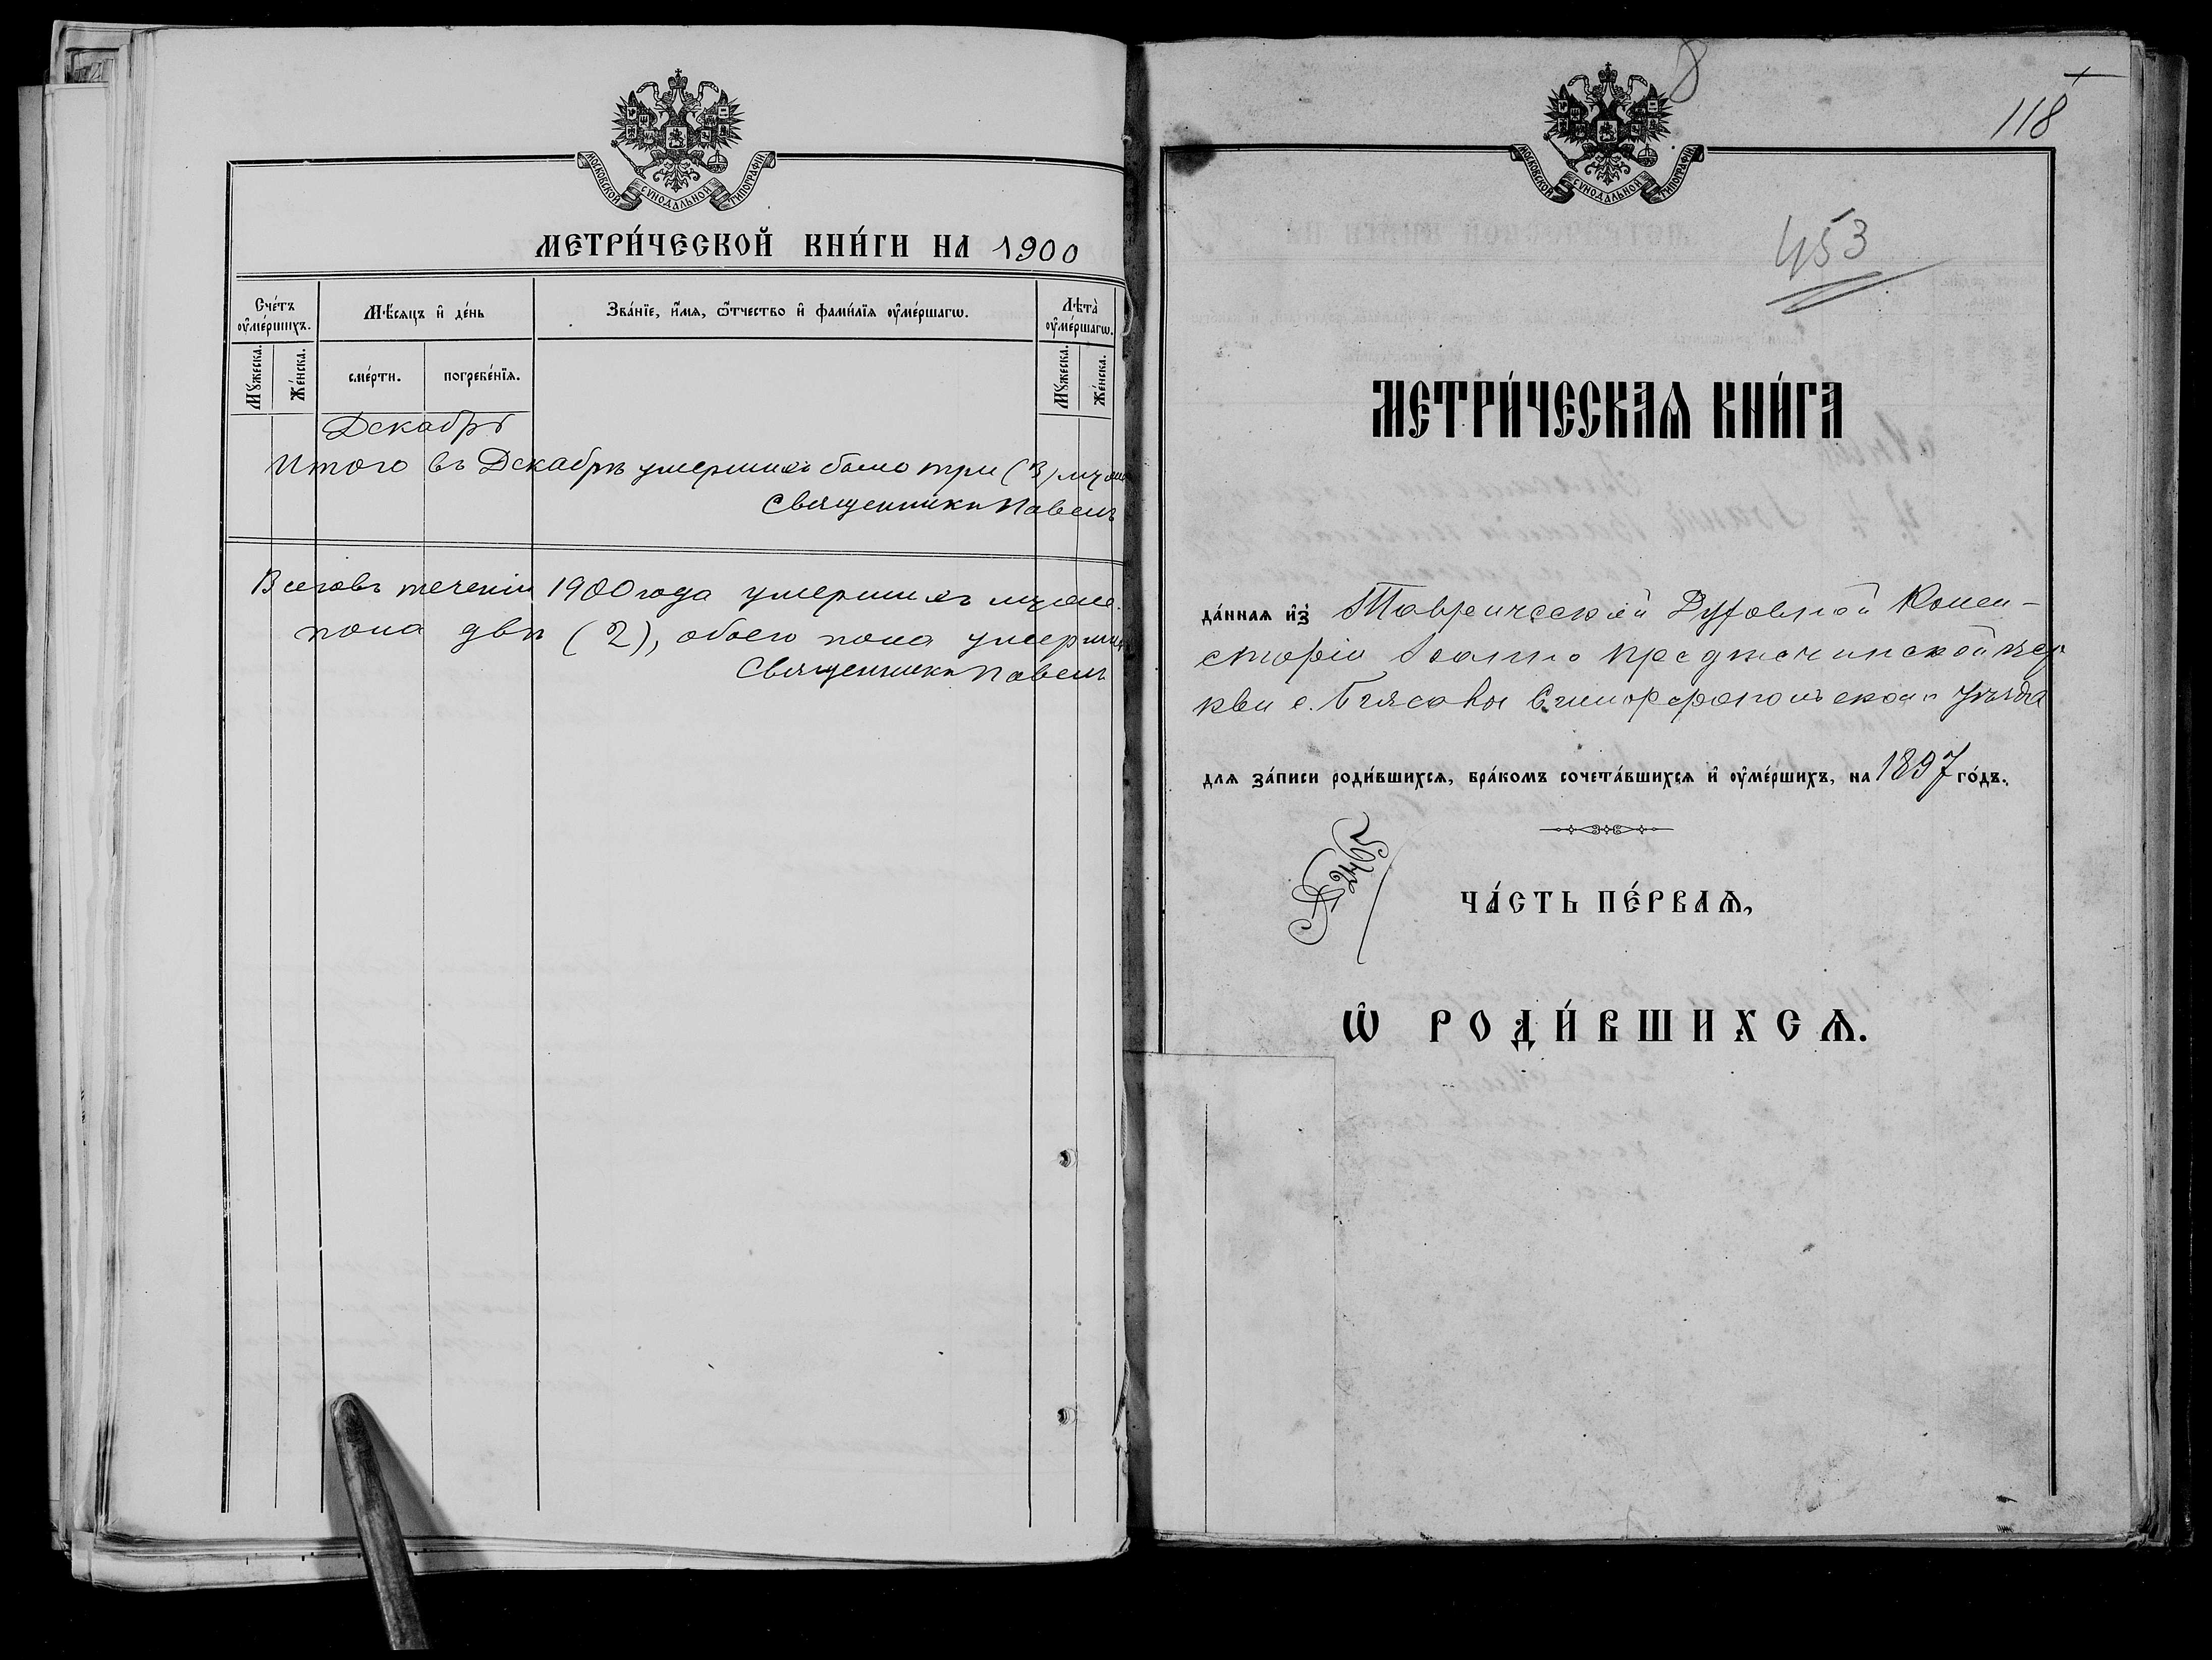 МОСКОВСКОЙ СѴНОДАЛЬНОЙ ТИПОГРАФІИ
МЕТРИ́ЧЕСКОЙ КНИ́ГИ НА 1900
Сче́тъ ᲂу҆ме́ршихъ.
Мѣ́сяцъ и҆ де́нь
Зва́нїе, и҆́мя, ѻ҆́тчество и҆ фами́лїя ᲂу҆ме́ршагѡ.
Лѣ́та ᲂу҆ме́ршагѡ.
Мꙋ́жеска.
Же́нска.
сме́рти.
погребе́нїя.
Мꙋ́жеска.
Же́нска.
Декабрь
Итого въ Декабрѣ умершихъ было три (3) муже
Священникъ Павелъ
Всего въ теченіи 1900 года умершихъ муже.
пола двѣ (2), обоего пола умерши
Священникъ Павелъ
8
118
МОСКОВСКОЙ СѴНОДАЛЬНОЙ ТИПОГРАФІИ
453
МЕТРИ́ЧЕСКАѦ КНИ́ГА
да́нная и҆з̾ Таврической Духовной Конси-
сторіи Іоанно Предтечинской цер
кви с. Біясалы Симферопольскаго уѣзда
для за́писи роди́вшихся, бра́комъ сочета́вшихся и҆ ᲂу҆ме́ршихъ, на 1897 го́дъ.
№ 2465
ЧА́СТЬ ПЕ́РВАѦ,
Ѡ҆ РОДИ́ВШИХСѦ.